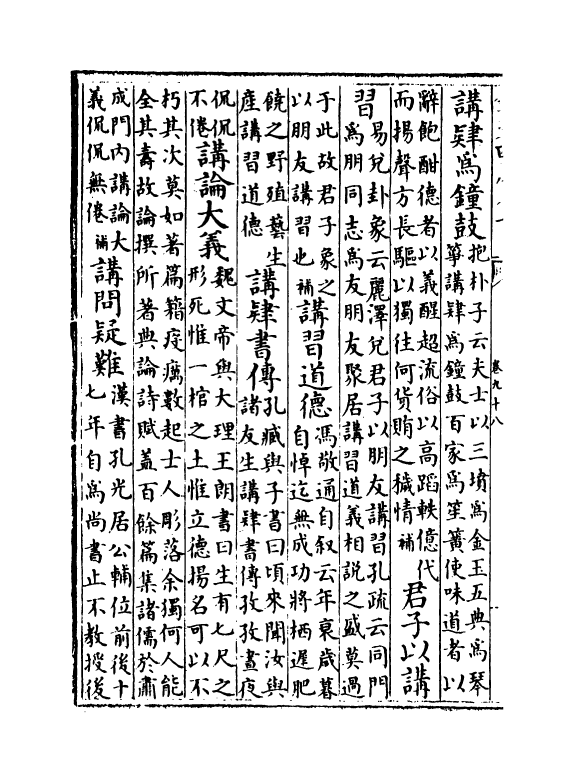 講肄為鐘鼓
抱朴子云夫士以三墳為金玉五典為琴
箏講肄為鐘鼓百家為笙簧使味道者以
辭飽酣德者以義醒超流俗以高蹈軼億代
而揚聲方長驅以獨往何貨賄之穢情補
君子以講
習
易兌卦象云麗澤兌君子以朋友講習孔疏云同門
為朋同志為友朋友聚居講習道義相說之盛莫過
于此故君子象之
以朋友講習也補
講習道德
馮敬通自叙云年衰歲暮
自悼迄無成功將栖遲肥
饒之野殖藝生
產講習道德
講肄書傳
孔臧與子書曰頃來聞汝與
諸友生講肄書傳孜孜晝夜
侃侃
不倦
講論大義
魏文帝與大理王朗書曰生有七尺之
形死惟一棺之土惟立德揚名可以不
朽其次莫如著篇籍疫癘數起士人彫落余獨何人能
全其壽故論撰所著典論詩賦蓋百餘篇集諸儒於肅
成門內講論大
義侃侃無倦補
講問疑難
漢書孔光居公輔位前後十
七年自為尚書止不教授後
卷九十八